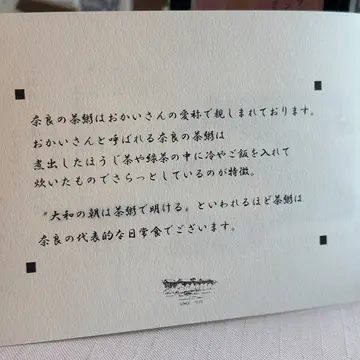 奈良の茶粥はおかいさんの愛称で親しまれております。
おかいさんと呼ばれる奈良の茶粥は
煮出したほうじ茶や緑茶の中に冷やご飯を入れて
炊いたものでさらっとしているのが特徴。
〝大和の朝は茶粥で明ける〟といわれるほど茶粥は
奈良の代表的な日常食でございます。